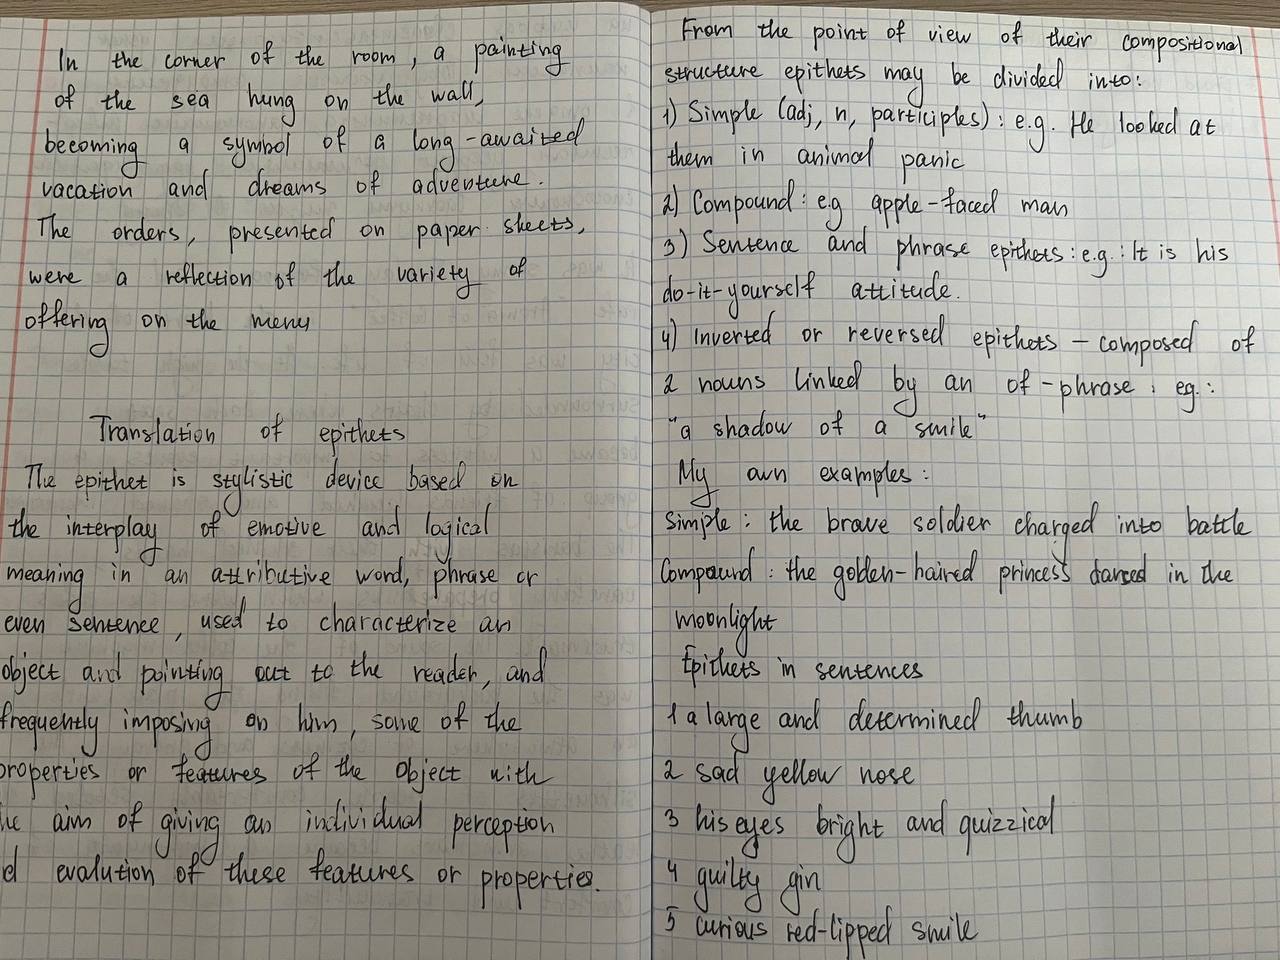 In the corner of the room, a painting
of the sea hung on the wall,
becoming a symbol of a long-awaited
vacation and dreams of adventure.
The orders, presented on paper sheets,
were a reflection of the variety of
offering on the menu
Translation of epithets
The epithet is stylistic device based on
the interplay of emotive and logical
meaning in an attributive word, phrase or
even sentence, used to characterize an
object and pointing out to the reader, and
frequently imposing on him, some of the
properties or features of the object with
he aim of giving an individual perception
d evalution of these features or properties.
From the point of view of their compositional
structure epithets may be divided into:
1) Simple (adj, n, participles): e.g. He looked at
them in animal panic
2) Compound: e.g apple-faced man
3) Sentence and phrase epithets: e.g.: It is his
do-it-yourself attitude.
4) Inverted or reversed epithets - composed of
2 nouns linked by an of-phrase: eg.:
"a shadow of a smile"
My own examples:
Simple: the brave soldier charged into battle
Compound: the golden-haired princess danced in the
moonlight
Epithets in sentences
1 a large and determined thumb
2 sad yellow nose
3 his eyes bright and quizzical
4 guilty gin
5 curious red-lipped smile